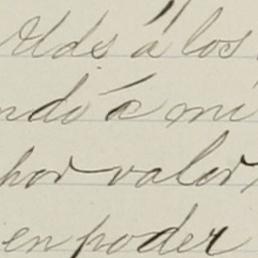 Uds á los
ndo á mi
por valor
en poder